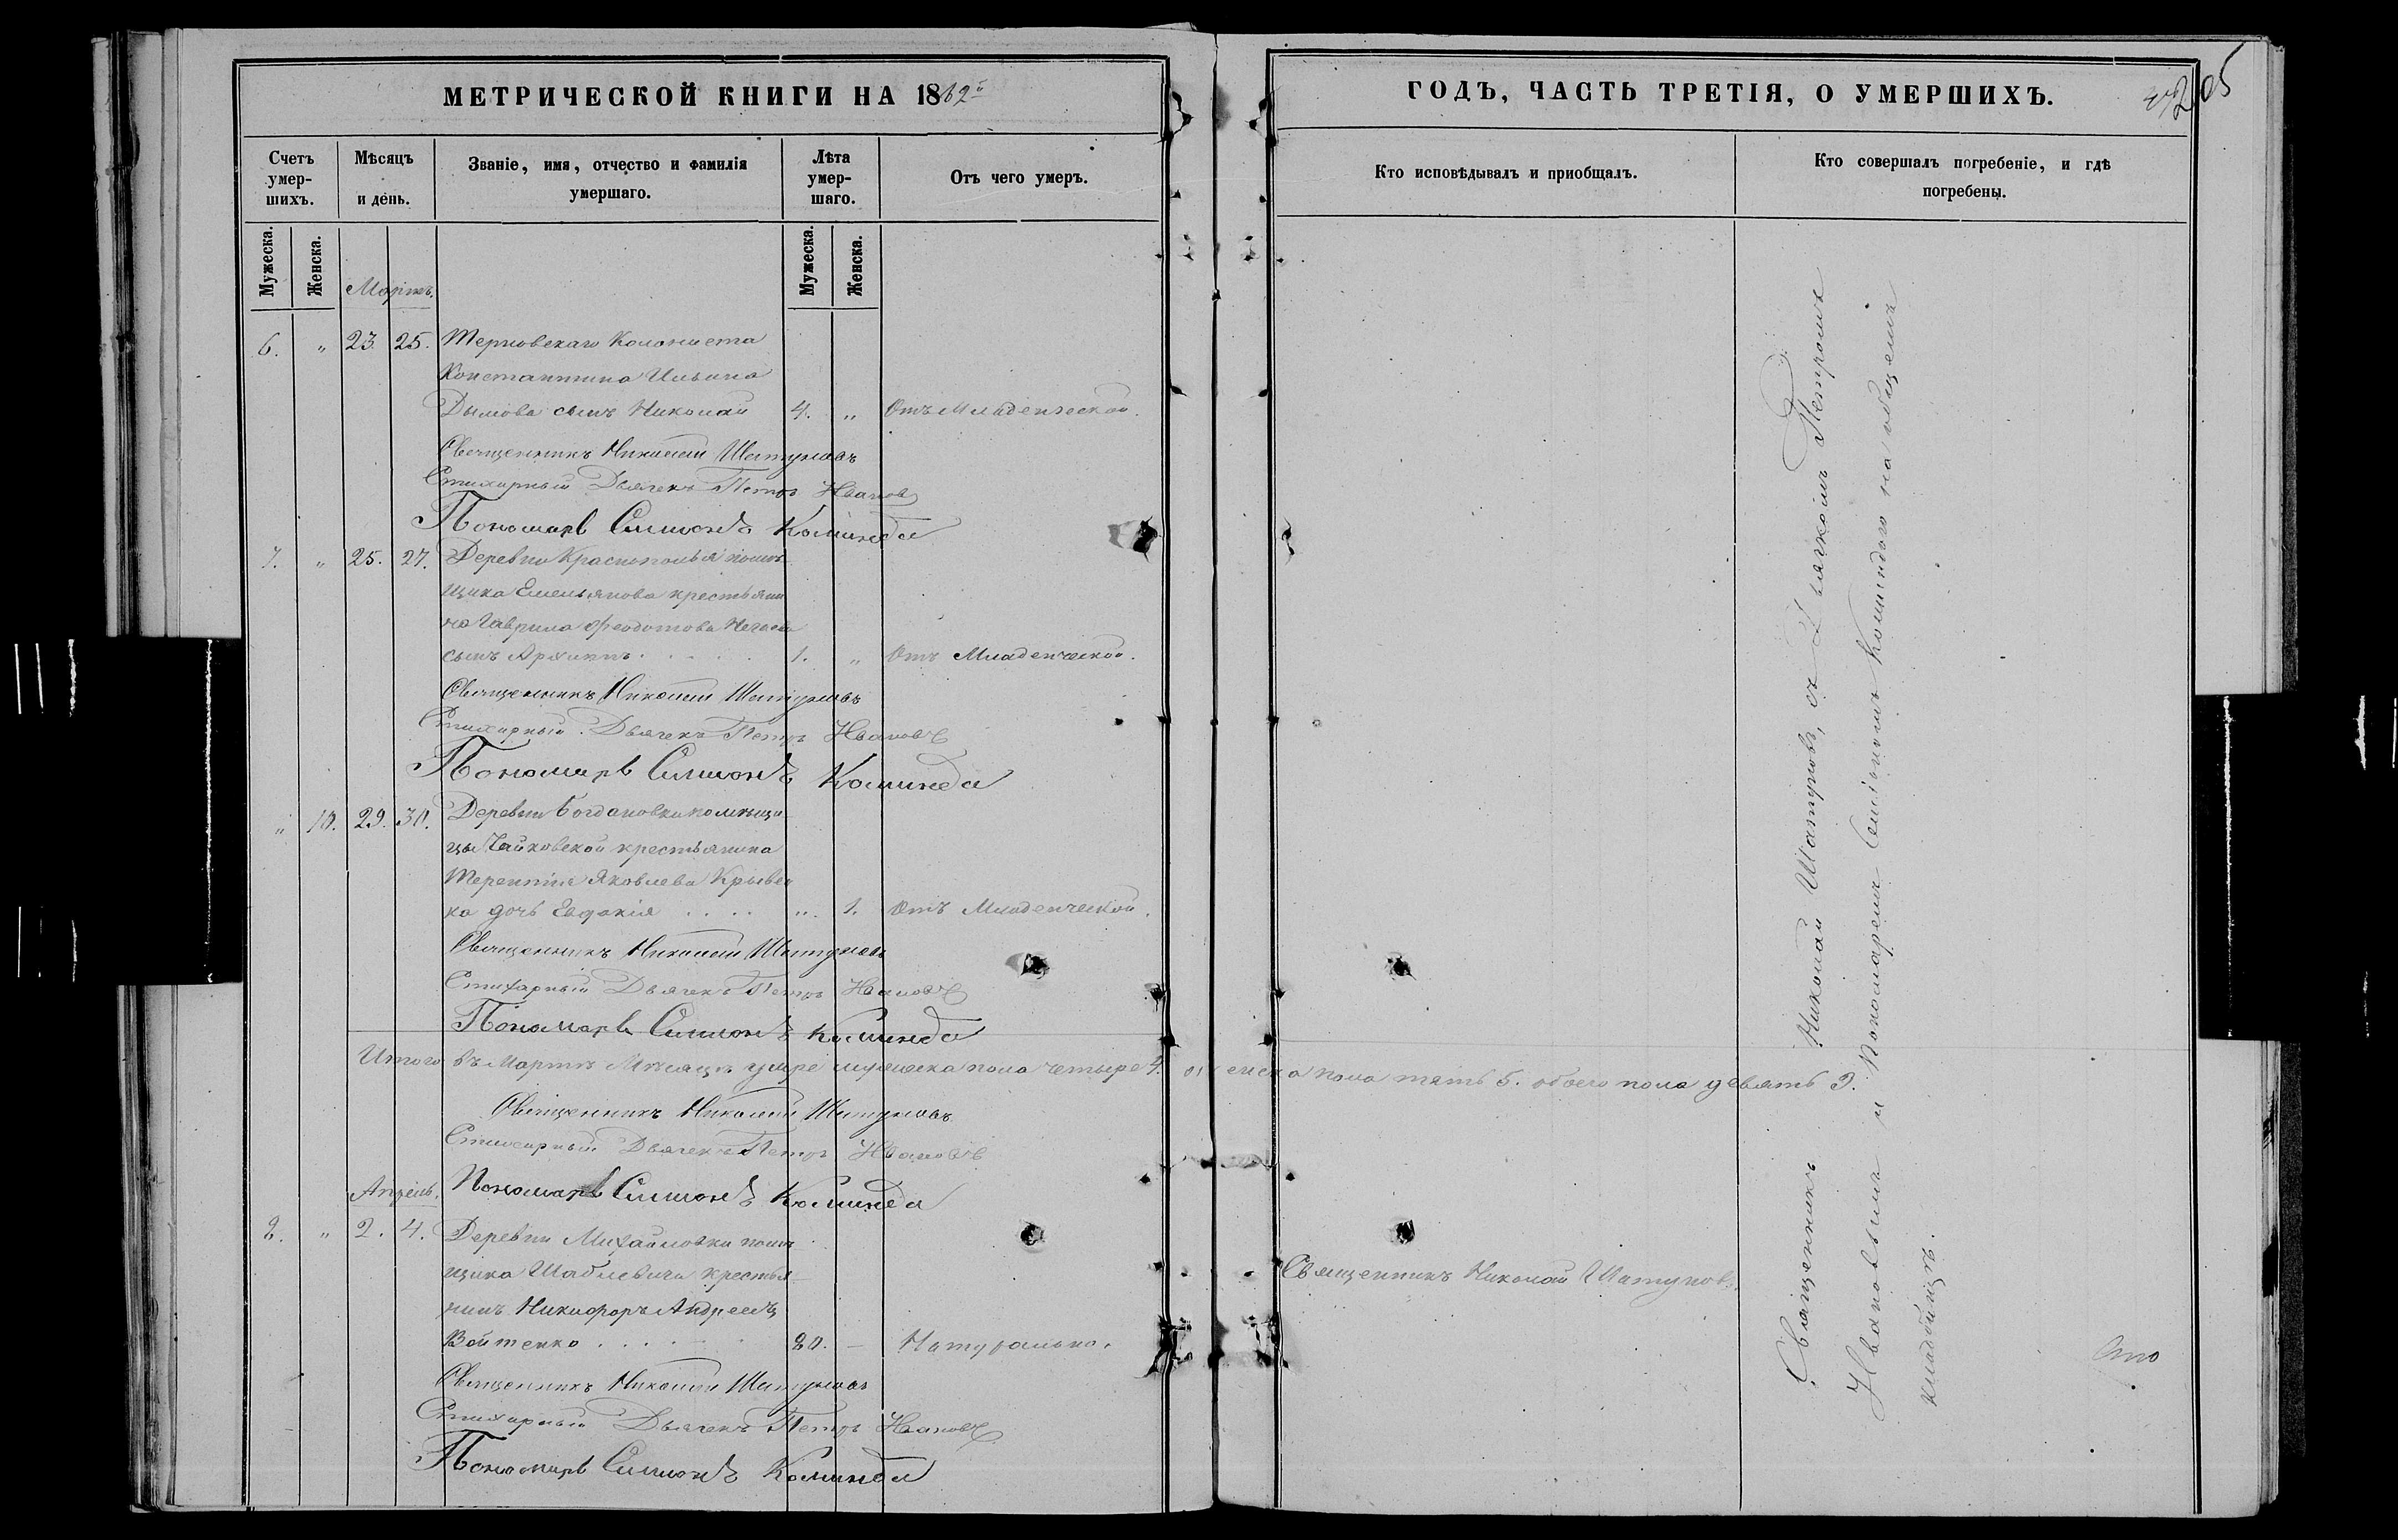 МЕТРИЧЕСКОЙ КНИГИ НА 1862й
Счетъ умер-шихъ.
Мѣсяцъ и день.
Званіе, имя, отчество и фамилія умершаго.
Лѣта умер-шаго.
Отъ чего умеръ.
Мужеска.
Женска.
Мужеска.
Женска.
Мартъ.
6. „ 23. 25. Терновскаго Колониста
Константина Ильина
Дымова сынъ Николай 4. „ Отъ Младенческой.
Священникъ Николай Шатуновъ
Стихарный Дьячекъ Петръ Ивановъ
Пономарь Симионъ Коминда
7. „ 25. 27. Деревни Краснополья помѣ
щика Емельянова крестьяни
на Гаврила Феодотова
сынъ Архипъ . . . . 1. „ Отъ Младенческой.
Священникъ Николай Шатуновъ
Стихарный Дьячекъ Петръ Ивановъ
Пономарь Симионъ Коминда
„ 10. 29. 30. Деревни Богдановки помѣщи
цы Чайковской крестьянина
Терентія Яковлева Крывен
ка дочь Евдокія . . . . „ 1. Отъ Младенческой.
Священникъ Николай Шатуновъ
Стихарный Дьячекъ Петръ Ивановъ
Пономарь Симионъ Коминда
Итого въ Мартѣ Мѣсяцѣ умре мужеска пола четыре 4.
Священникъ Николай Шатуновъ
Стихарный Дьячекъ Петръ Ивановъ
Пономарь Симионъ Коминда
Апрѣль.
8. „ 2. 4. Деревни Михайловки помѣ
щика Шаблевича крестья
нинъ Никифоръ Андреевъ
Войтенко . . . . 80. — Натурально.
Священникъ Николай Шатуновъ
Стихарный Дьячекъ Петръ Ивановъ
Пономарь Симионъ Коминда
ГОДЪ, ЧАСТЬ ТРЕТІЯ, О УМЕРШИХЪ.
205
Кто исповѣдывалъ и приобщалъ.
Кто совершалъ погребеніе, и гдѣ погребены.
женска пола пять 5. обоего пола девять 9.
Священникъ Николай Шатуновъ.
Священникъ Николай Шатуновъ, съ Дьячкомъ Петромъ
Ивановымъ и Пономаремъ Симіономъ Коминдого на общемъ
кладбищѣ.